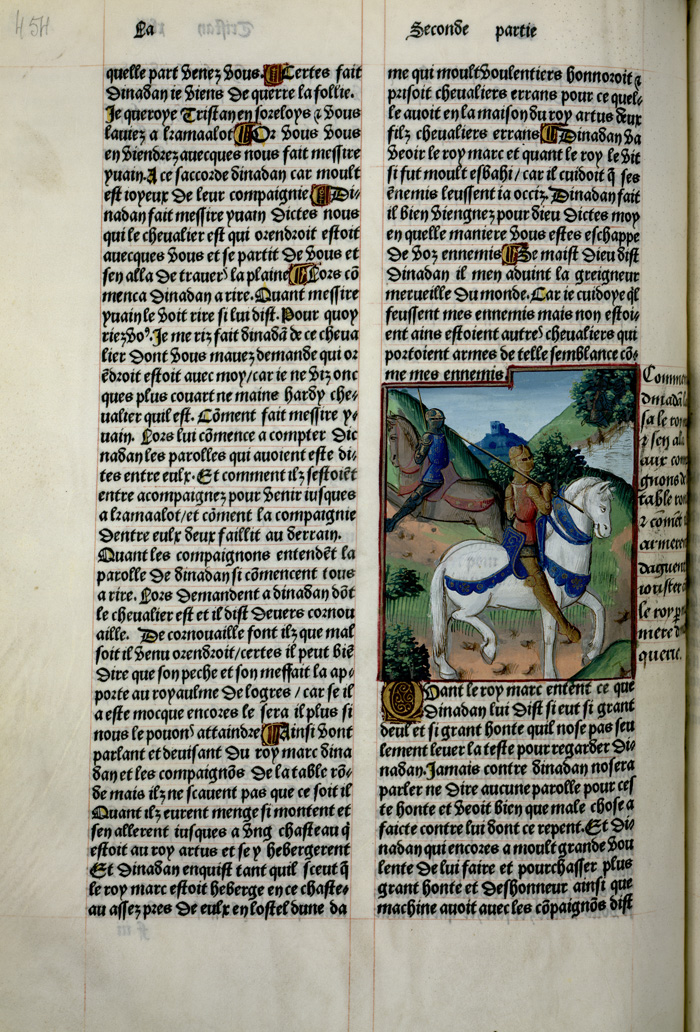 454
La
Seconde partie
quelle part venez vous. Certes fait
dinadan ie viens de querre la follie.
Je queroye Tristan en soreloys ⁊ vous
lauiez a kramaalot Or vous vous
en viendrez auecques nous fait messire
yuain. A ce saccorde dinadan car moult
est ioyeux de leur compaignie Di-
nadan fait messire yuain Dictes nous
qui le cheualier est qui orendroit estoit
auecques vous et se partit de vous et
sen alla de trauers la plaine Lors cō
menca dinadan a rire. Quant messire
yuain le voit rire si lui dist. Pour quoy
riez voꝰ. Je me riz fait dinadā de ce cheua
lier dont vous mauez demande qui or
ēdroit estoit auec moy/car ie ne viz onc
ques plus couart ne mains hardy che-
ualier quil est. Cōment fait messire y-
uain. Lors lui cōmence a compter Di
nadan les parolles qui auoient este di-
tes entre eulx. Et comment ilz sestoiēt
entre acompaignez pour venir iusques
a kramaalot/et cōment la compaignie
dentre eulx deux faillit au derrain.
Quant les compaignons entendēt la
parolle de dinadan si cōmencent tous
a rire. Lors demandent a dinadan dōt
le cheualier est et il dist deuers cornou
aille. De cornouaille font ilz que mal
soit il venu orendroit/certes il peut biē
dire que son peche et son meffait la ap-
porte au royaulme de logres / car se il
a este mocque encores le sera il plus si
nous le pouons attaindre Ainsi vont
parlant et deuisant du roy marc dina
dan et les compaignōs de la table rō-
de mais ilz ne scauent pas que ce soit il
Quant ilz eurent menge si montent et
sen allerent iusques a vng chasteau q̄
estoit au roy artus et se y hebergerent
Et dinadan enquist tant quil sceut q̄
le roy marc estoit heberge en ce chaste-
au assez pres de eulx en lostel dune da
me qui moult voulentiers honnoroit ⁊
prisoit cheualiers errans pour ce quel-
le auoit en la maison du roy artus deux
filz cheualiers errans Dinadan va
veoir le roy marc et quant le roy le vit
si fut moult esbahi / car il cuidoit q̄ ses
ēnemis leussent ia occiz. Dinadan fait
il bien viengnez pour dieu Dictes moy
en quelle maniere vous estes eschappe
de voz ennemis Se maist dieu dist
Dinadan il men aduint la greigneur
merueille du monde. Car ie cuidoye q̄l
feussent mes ennemis mais non estoi-
ent ains estoient autres cheualiers qui
portoient armes de telle semblance cō-
me mes ennemis
Comme
dinadā
sa le roy
⁊ sen ala
aux com
gnons d
table ro
⁊ cōmēt
armerent
daguen
iouster
le roy
mere
querir.
Quant le roy marc entent ce que
Dinadan lui dist si eut si grant
deul et si grant honte quil nose pas seu
lement leuer la teste pour regarder Di-
nadan. Jamais contre dinadan nosera
parler ne dire aucune parolle pour ces
te honte et veoit bien que male chose a
faicte contre lui dont ce repent. Et di-
nadan qui encores a moult grande vou
lente de lui faire et pourchasser plus
grant honte et deshonneur ainsi que
machine auoit auec les cōpaignōs dist